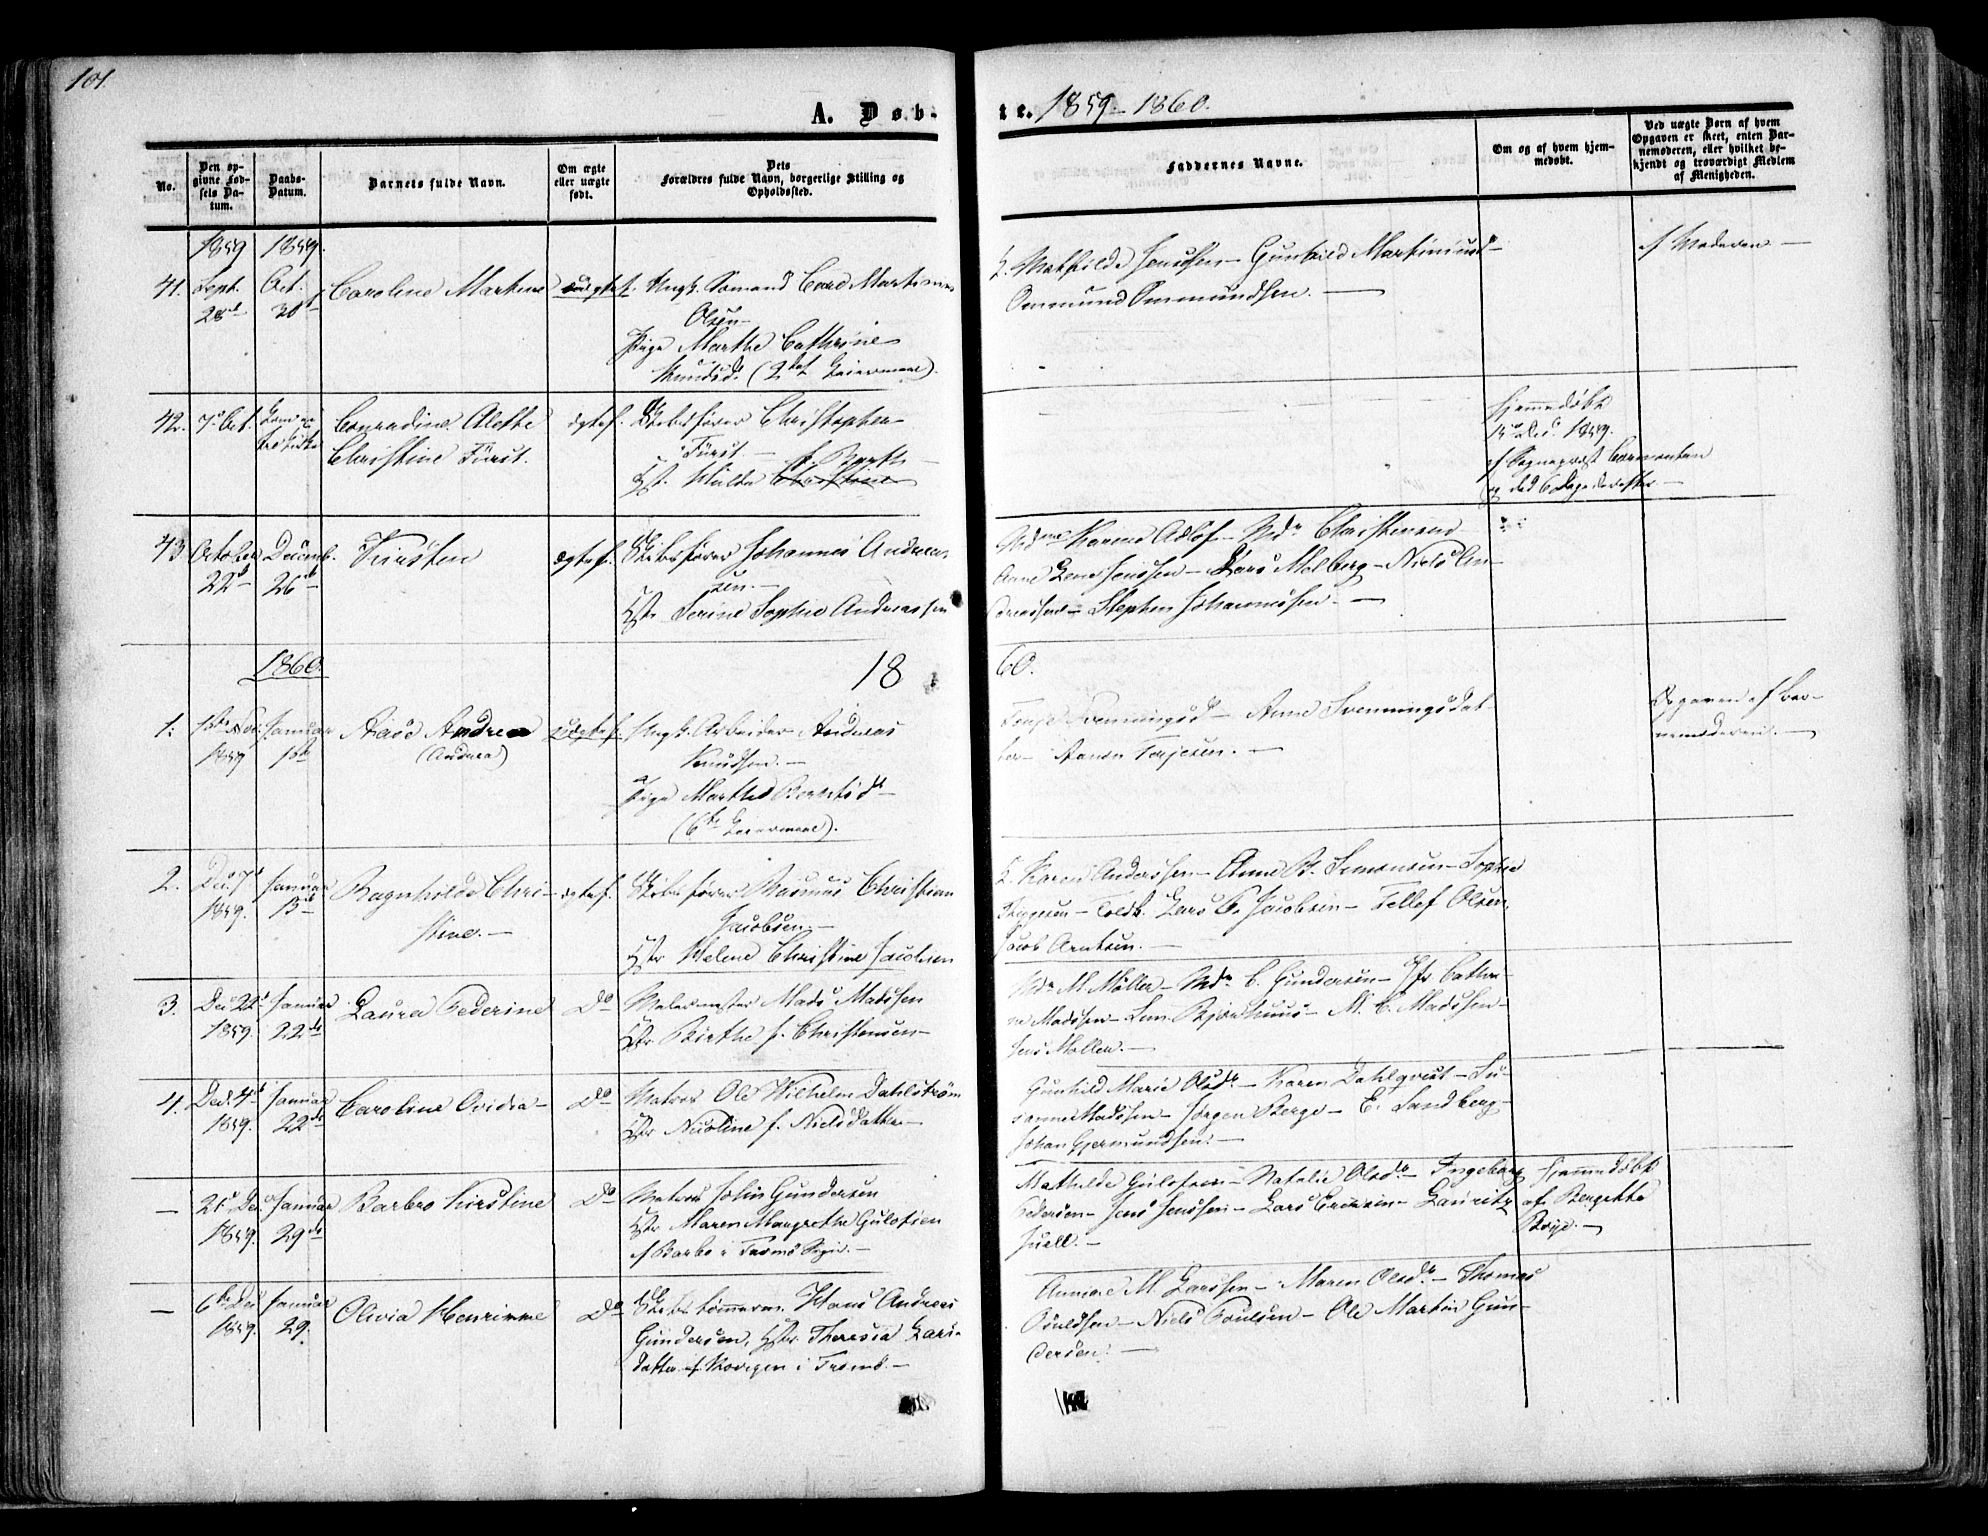 101.
A. Døb-
te. 1859-1860.
No.
Den op-
givne Fød-
sels Da-
tum.
Daabs-
Datum.
Barnets fulde Navn.
Om ægte
eller uægte
født.
Dets
Forældres fulde Navn, borgerlige Stilling og
Opholdssted.
Faddernes Navne.
Om og af hvem hjem-
medøbt.
Ved uægte Børn af hvem
Opgaven er skeet, enten Bar-
nemoderen, eller hvilket be-
kjendt og troværdigt Medlem
af Menigheden.
1859 1859.
41. Sept. 28d Oct. 30t Caroline Martine uægtef. Ungk. Sømand Carl Martinius
Olsen
Pige Marthe Cathrine
Knudsd. (2det Leiermaal).
Mathilde Jenssen - Gunhild Martinius
Ommund Ommundsen. -
af Moderen -
42. 7de Oct. Conradine Alette
Christine Fürst.
ægtef. Skibsfører Christopher
Fürst. -
Hst. Hulda Christine f. Barth
hjemmedøbt
15de Dec. 1859.
af Sogneprest
og død 6 Dage derefter -
43 October 22d Decemb. 26d Kirsten ægtef. Skibsfører Johannes Andreas-
sen. -
Hstr Serine Sophie Andreassen
Mdme Karine Adlof - Mdm Christensen
Anne Lene Jenssen - Lars Molberg - Niels An-
dreassen - Stephen Johannessen. -
1860. 18
60.
1. 1859 Januar Aase Andrea
(Andrea)
uægtef. Ungk. Arbeider Andreas
Knudsen. -
Pige Marthe Berntsdr
(6te Leiermaal).
Svenningsd - Anne Svenningsdat-
ter - Terjesen. -
Opgaven af Bar-
nemoderen. -
2. Dec. 7d 1859. Januar Ragnhilde Chri-
stine. -
ægtef. Skibsfører Rasmus Christian
Jacobsen -
Hstr Helene Christine Jacobsen
Karen Anderssen - Anne B. Simonsen - Sophie
Lars C. Jacobsen - Tellef Olsen,
Jacob Arntsen. -
3. Dec 22d 1859. Januar 22de Laura Federine Do Mads Madssen
Hstr Birthe f. Christensen -
Mdm M. Møller - Mdm C. Gundersen - Jfr Cathri-
ne Madssen - Bjornhuus - M. C. Madssen -
Jens Møller. -
4. Dec. 4d 1859. Januar 22de Caroline Ovidia - Do Matros Ole Wilhelm Dahlstrøm
Hstr Nicoline f. Nielsdatter -
Gunhild Marie Olsdr - Karen Dahlqvist - Su-
sanne Madssen - Jørgen Berge - E. Sandberg -
Johan Gjermundsen. -
- 21d Dec. 1859. Januar 29de Barbro Kirstine Do Matros John Gundersen
Hstr Maren Margrethe Gulofsen
af Barbo i Tromø Sogn. -
Mathilde Gulofsen - Natalie Olsdr - Ingeborg
Pedersen - Jens Jenssen - Lars Evensen - Lauritz
Juell. -
Hjemmedøbt
af Bergette
Boye. -
- 6te Dec 1859. Januar 29. Olivia Henrimine Do Skibstømmerm. Hans Andreas
Gundersen, Hstr Theresia Lars-
datter af i Tromø. -
M. Larssen - Maren Olsdr - Thomas
Poulssen - Niels Poulsen - Ole Martin Gun-
dersen. -